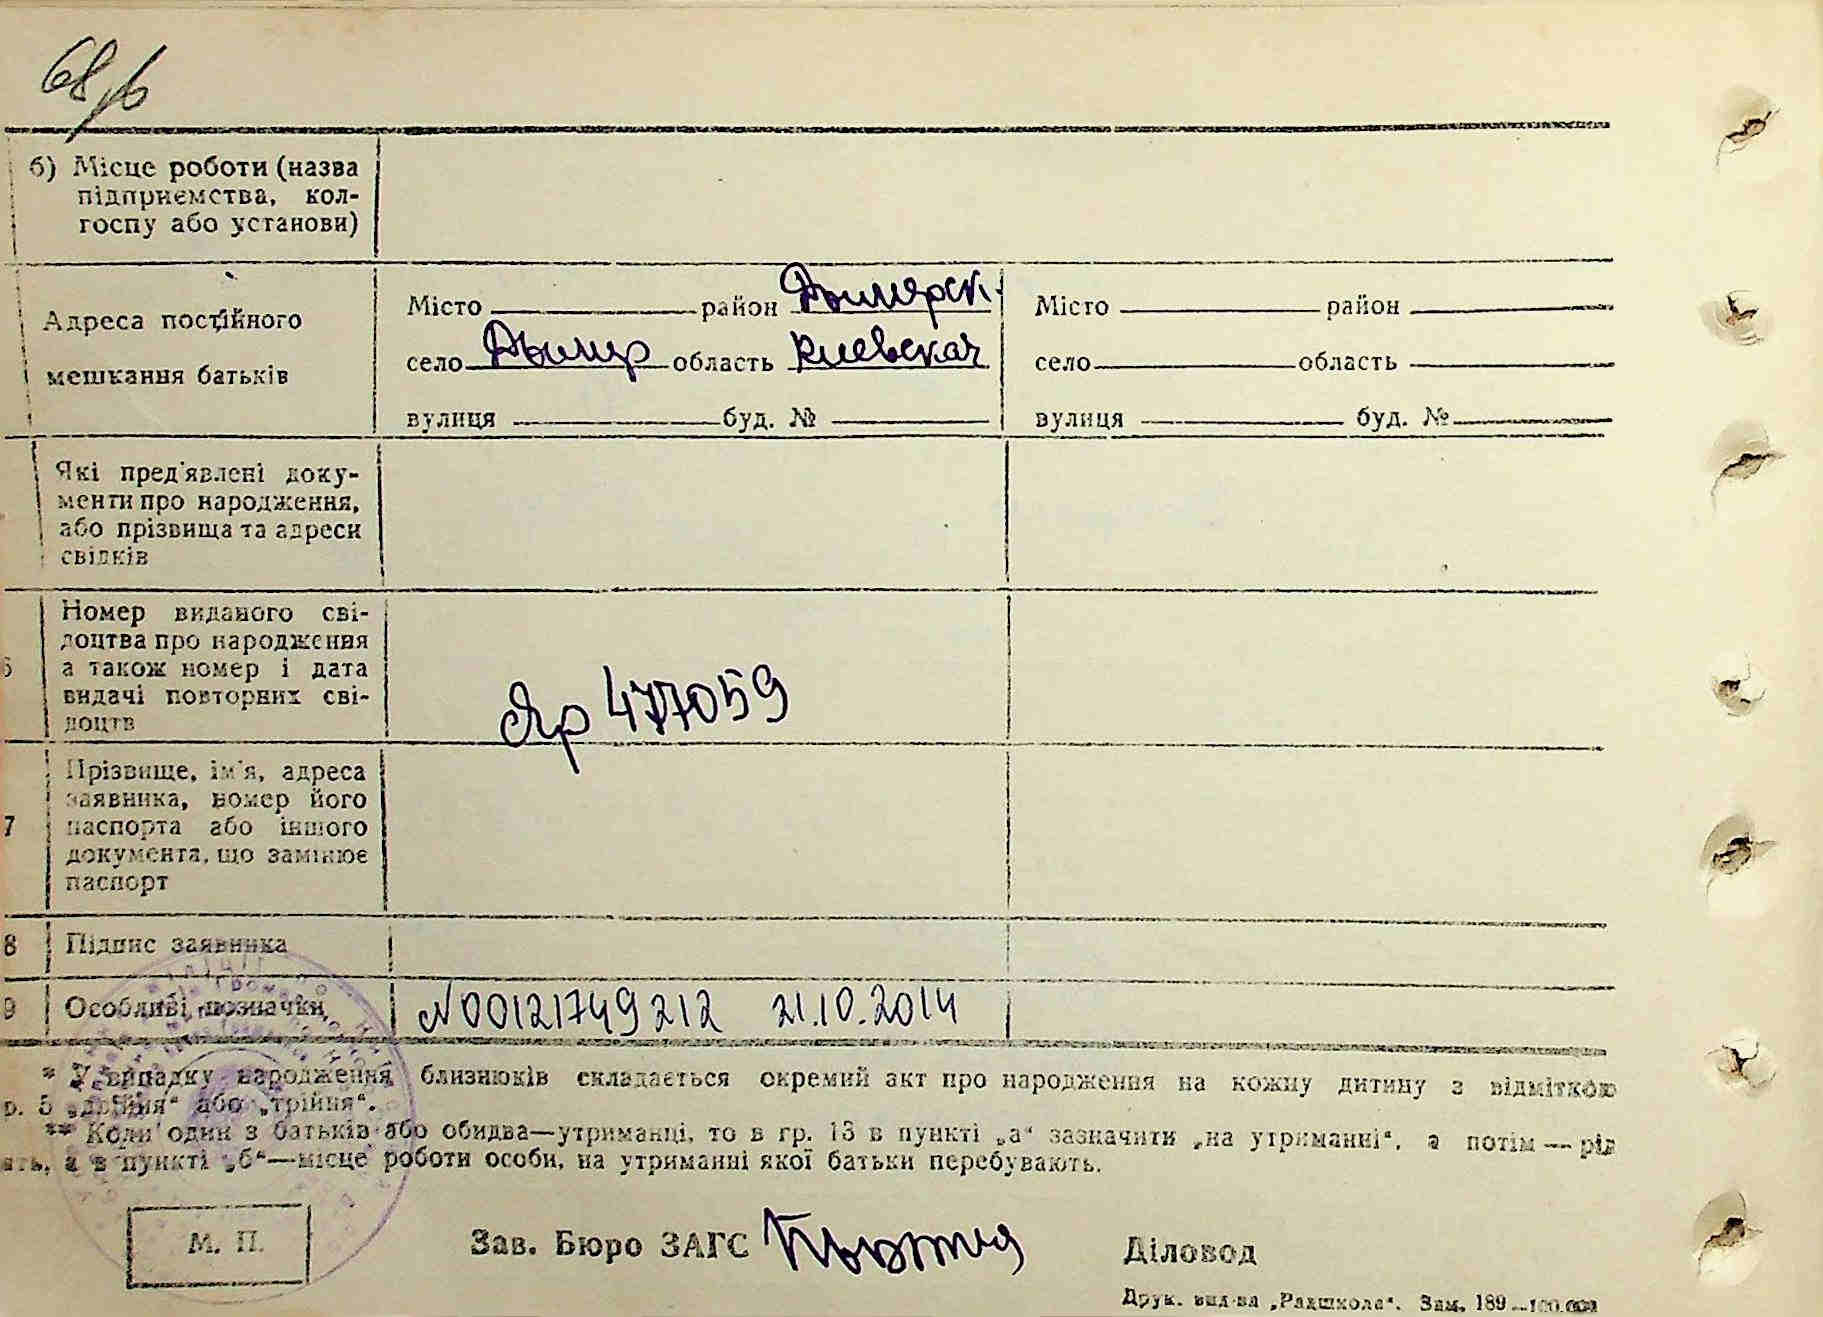 68/б
б) Місце роботи (назва
підприємства, кол-
госпу або установи)
Адреса постійного
мешкання батьків
Місто район Дымерск.
село Дымер область Киевская
вулиця буд. №
Місто район
село область
вулиця буд. №
Які пред'явлені доку-
менти про народження,
або прізвища та адреси
свідків
6
Номер виданого сві-
доцтва про народження
а також номер і дата
видачі повторних сві-
доцтв
Яр 477059
7
Прізвище, ім'я, адреса
заявника, номер його
паспорта або іншого
документа, що замінює
паспорт
8 Підпис заявника
9 Особливі позначки N 00121749212 21.10.2014
* У випадку народження близнюків складається окремий акт про народження на кожну дитину з відміткою
р. 5 „двійня“ або „трійня“.
** Коли один з батьків або обидва—утриманці, то в гр. 13 в пункті „а“ зазначити „на утриманні“, а потім — рід
ять, а в пункті „б“—місце роботи особи, на утриманні якої батьки перебувають.
М. П.
Зав. Бюро ЗАГС
Діловод
Друк. вид-ва „Радшкола“. Зам. 189—100.000